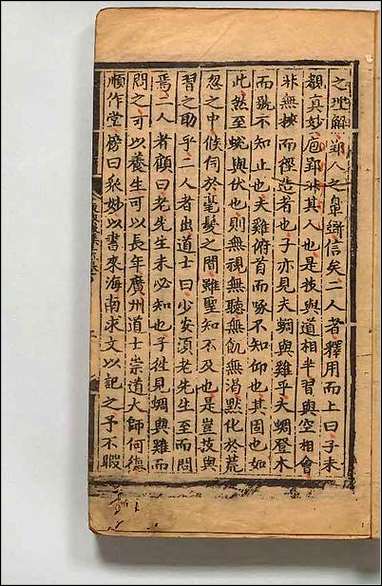 之理解郢人之鼻斵信矣二人者釋用而上曰子未
覩真妙庖郢非其人也是技與道相半習與空相會
非無挾而徑造者也子亦見夫蜩與雞乎夫蜩登木
而號不知止也夫雞俯首而啄不知仰也其固也如
此然至蛻與伏也則無視無聽無飢無渴默化於荒
忽之中候伺於毫髮之間雖聖知不及也是豈技與
習之助乎二人者出道士曰少安湏老先生至而問
焉二人者顧曰老先生未必知也子徃見蜩與雞而
問之可以養生可以長年廣州道士崇道大師何德
順作堂傍曰衆妙以書來海南求文以記之予不暇